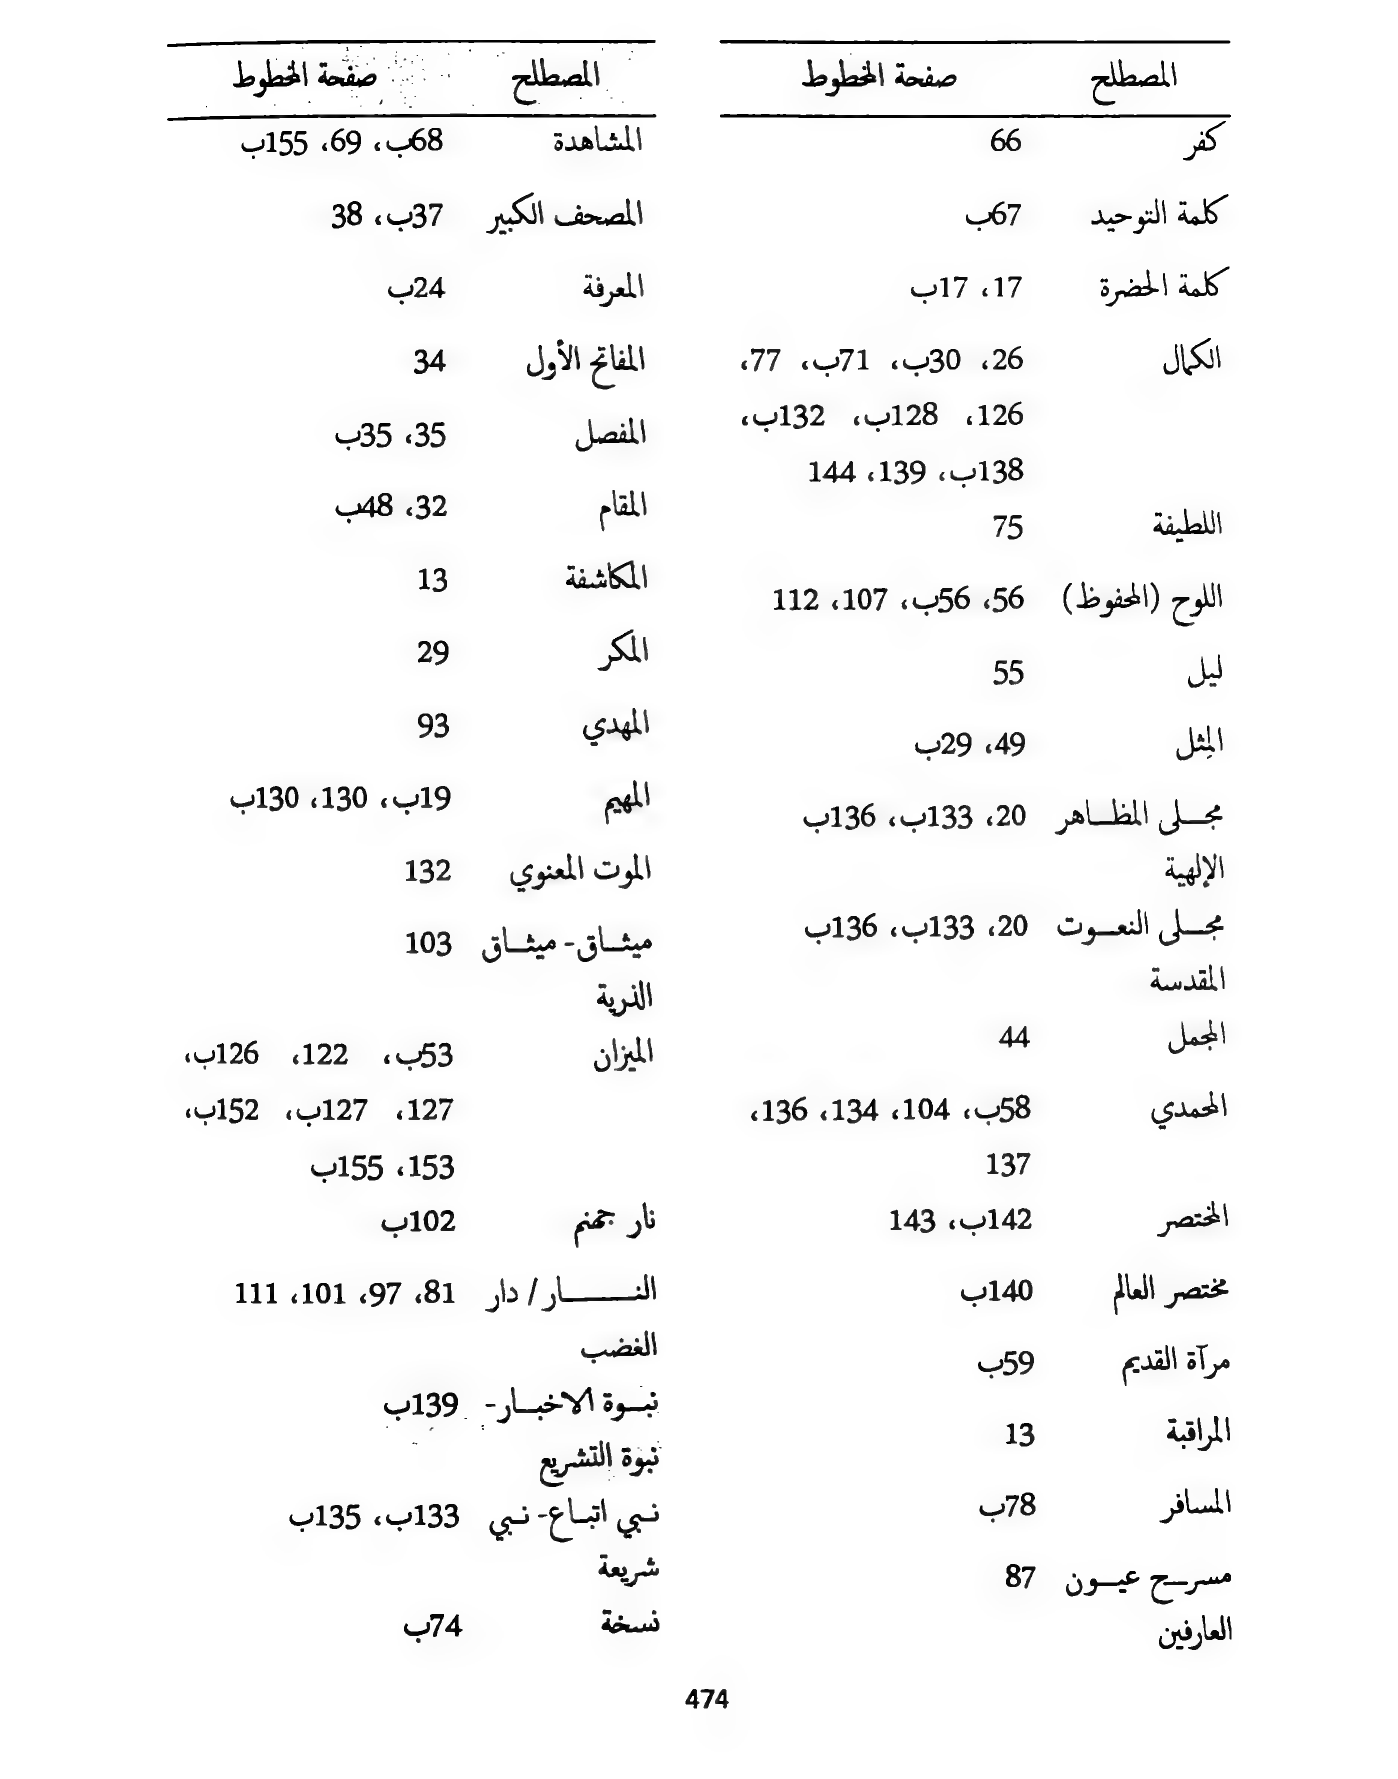 المصطلح صفحة المخطوط
كفر 66
كلمة التوحيد 67ب
كلمة الحضرة 17، 17ب
الكمال 26، 30ب، 71ب، 77،
126، 128ب، 132ب،
138ب، 139، 144
اللطيفة 75
اللوح (المحفوظ) 56، 56ب، 107، 112
ليل 55
المِثل 49، 29ب
مجـلى المظـاهر 20، 133ب، 136ب
الإلهية
مجـلى النعـوت 20، 133ب، 136ب
المقدسة
المجمل 44
المحمدي 58ب، 104، 134، 136،
137
المختصر 142ب، 143
مختصر العالم 140ب
مرآة القديم 59ب
المراقبة 13
المسافر 78ب
مسرـح عيـون 87
العارفين
المصطلح صفحة المخطوط
المشاهدة 68ب، 69، 155ب
المصحف الكبير 37ب، 38
المعرفة 24ب
المفاتح الأول 34
المفصل 35، 35ب
المقام 32، 48ب
المكاشفة 13
المكر 29
المهدي 93
المهيم 19ب، 130، 130ب
الموت المعنوي 132
ميثـاق- ميثـاق 103
الذرية
الميزان 53ب، 122، 126ب،
127، 127ب، 152ب،
153، 155ب
نار جهنم 102ب
النـــــار / دار 81، 97، 101، 111
الغضب
نبـوة الاخبـار- 139ب
نبوة التشريع
نـبي اتبـاع- نـبي 133ب، 135ب
شريعة
نسخة 74ب
474